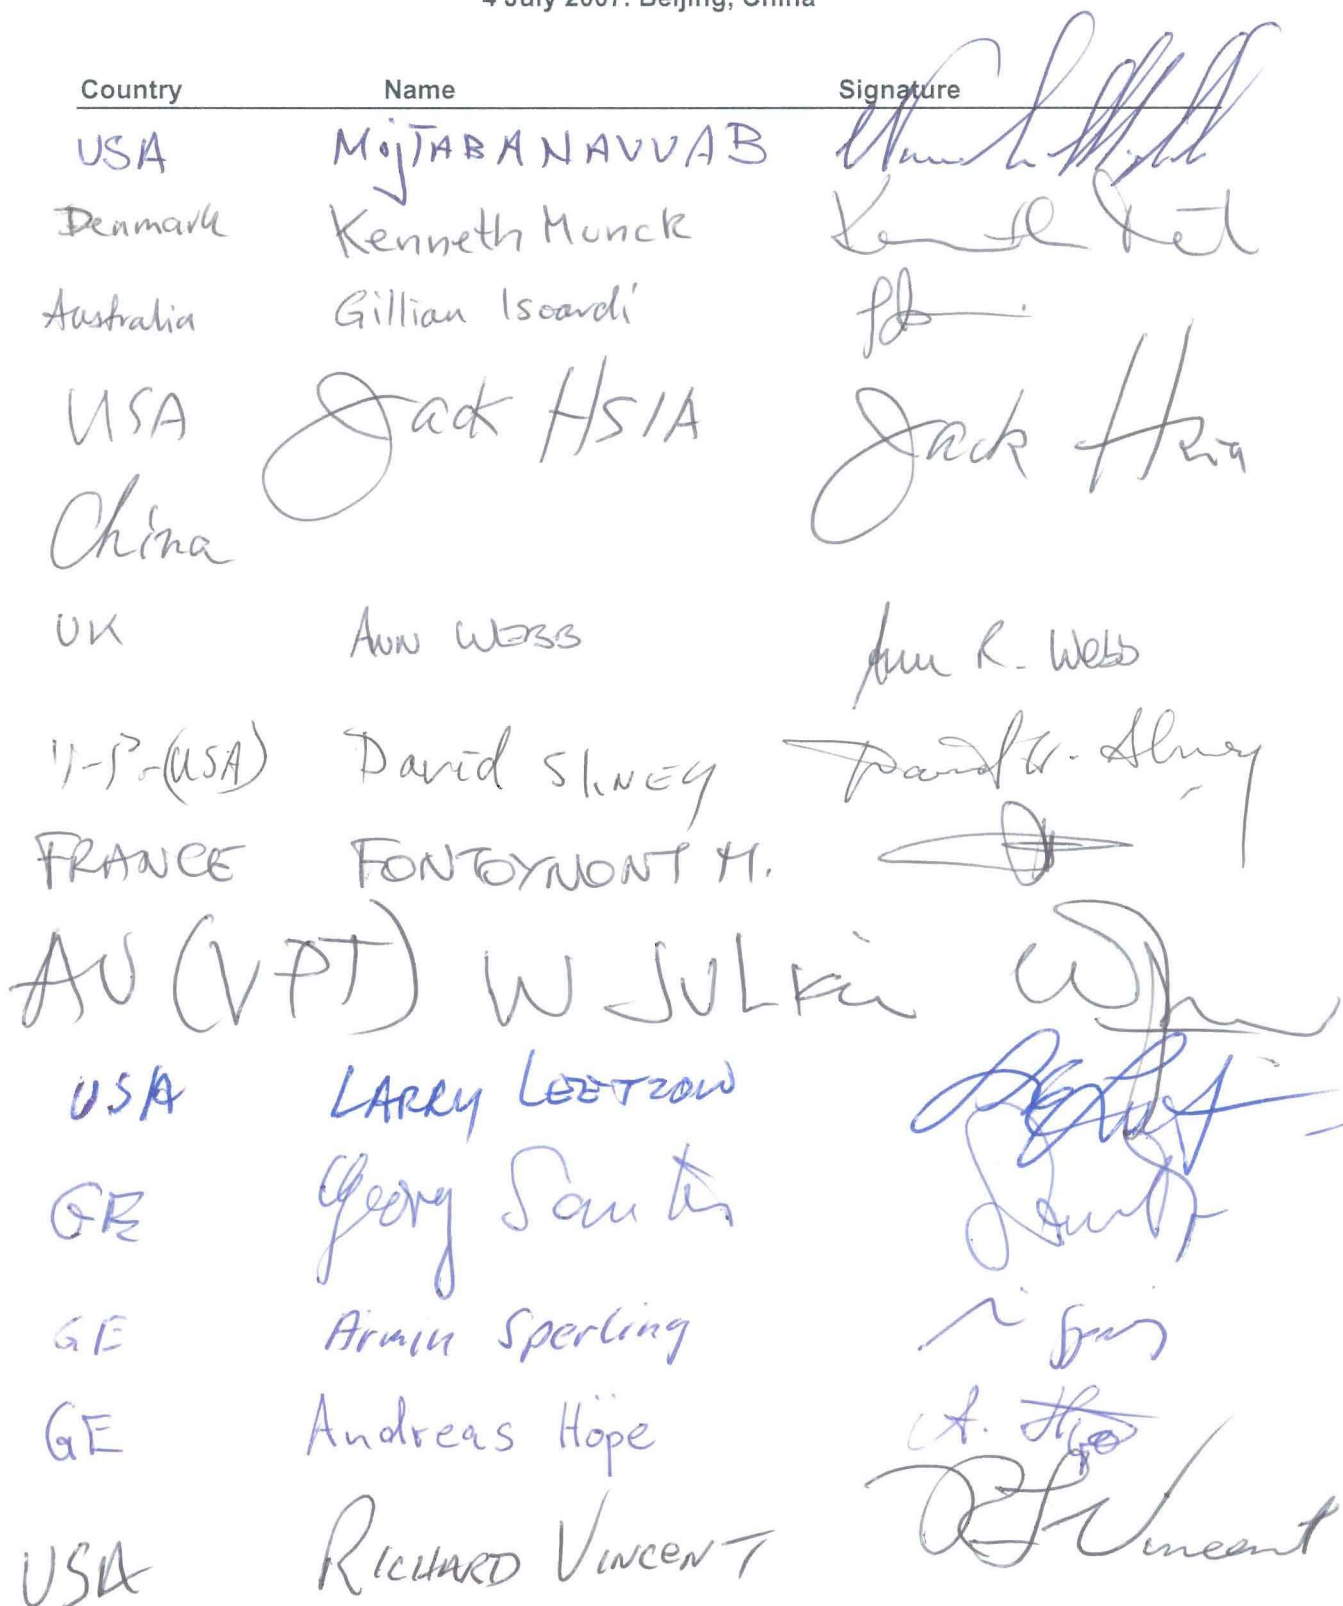 4 July 2007. Beijing, China
Country Name Signature
USA MOjTABA NAVVAB
Denmark Kenneth Munck
Australia Gillian Isoardi
USA Jack HSIA Jack Hsia
China
UK ANN WEBB Ann R. Webb
(USA) David SLINEY
FRANCE FONTOYNONT M.
AU (VPT) W JULian
USA LARRY LEETZOW
GE Georg Sauter
GE Armin Sperling
GE Andreas Höpe A.
USA RICHARD VINCENT Vincent